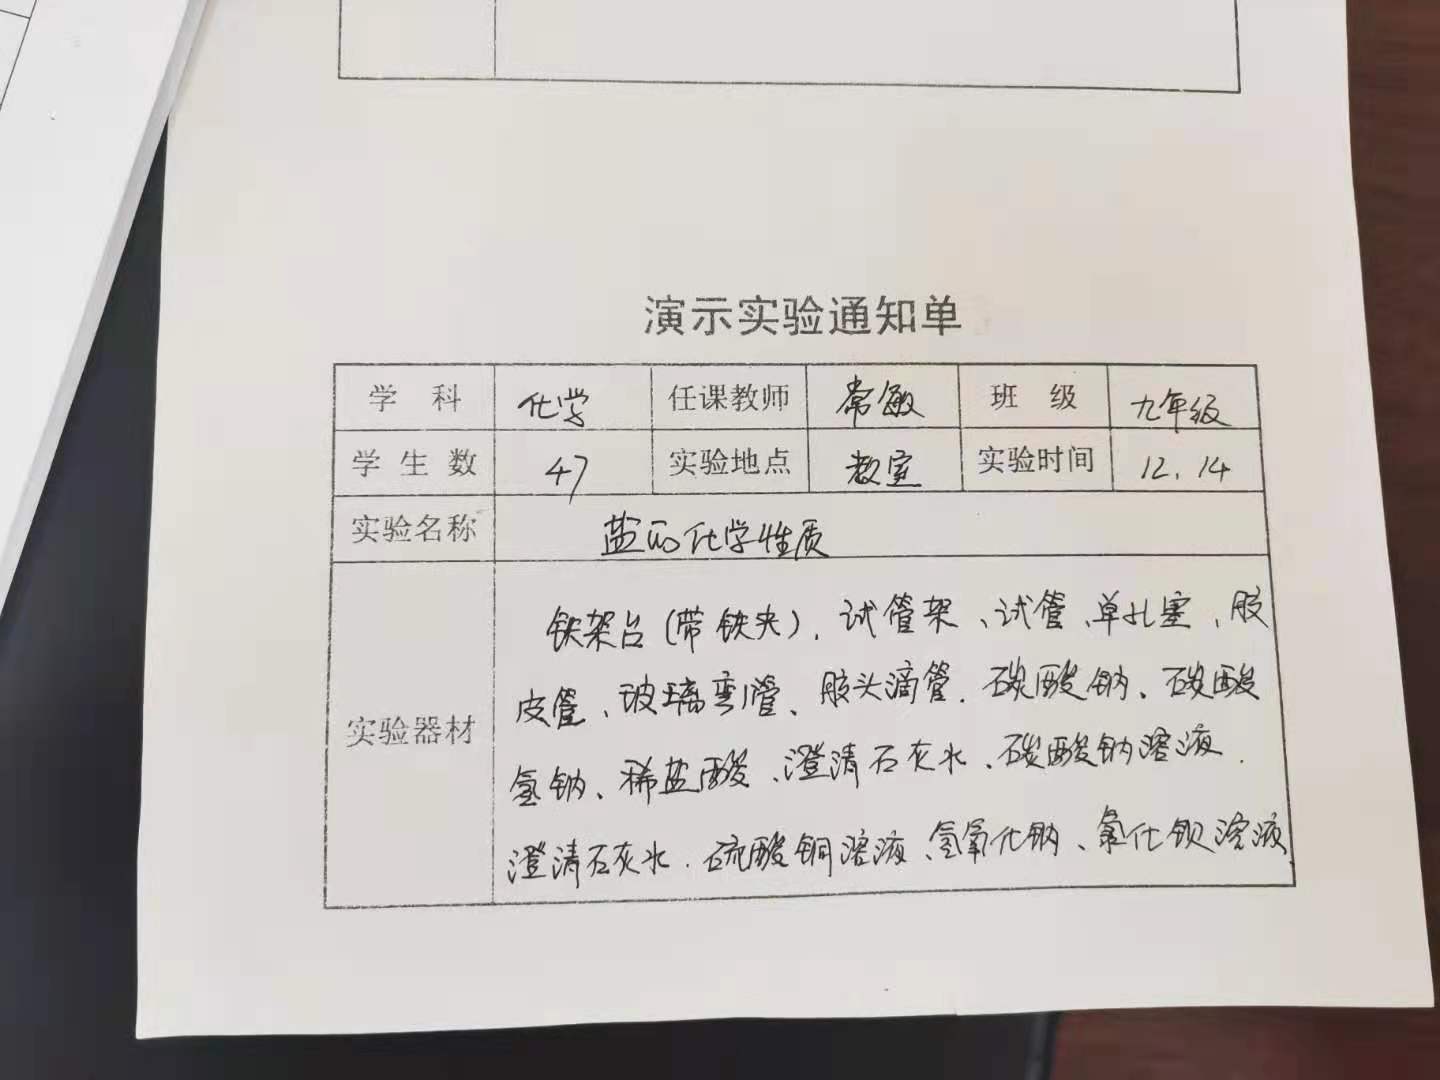 演示实验通知单
学 科 化学 任课教师 常敏 班 级 九年级
学 生 数 47 实验地点 教室 实验时间 12.14
实验名称 盐的化学性质
实验器材
铁架台(带铁夹)、试管架、试管、单孔塞、胶
皮管、玻璃弯管、胶头滴管、碳酸钠、碳酸
氢钠、稀盐酸、澄清石灰水、碳酸钠溶液、
澄清石灰水、硫酸铜溶液、氢氧化钠、氯化钡溶液、